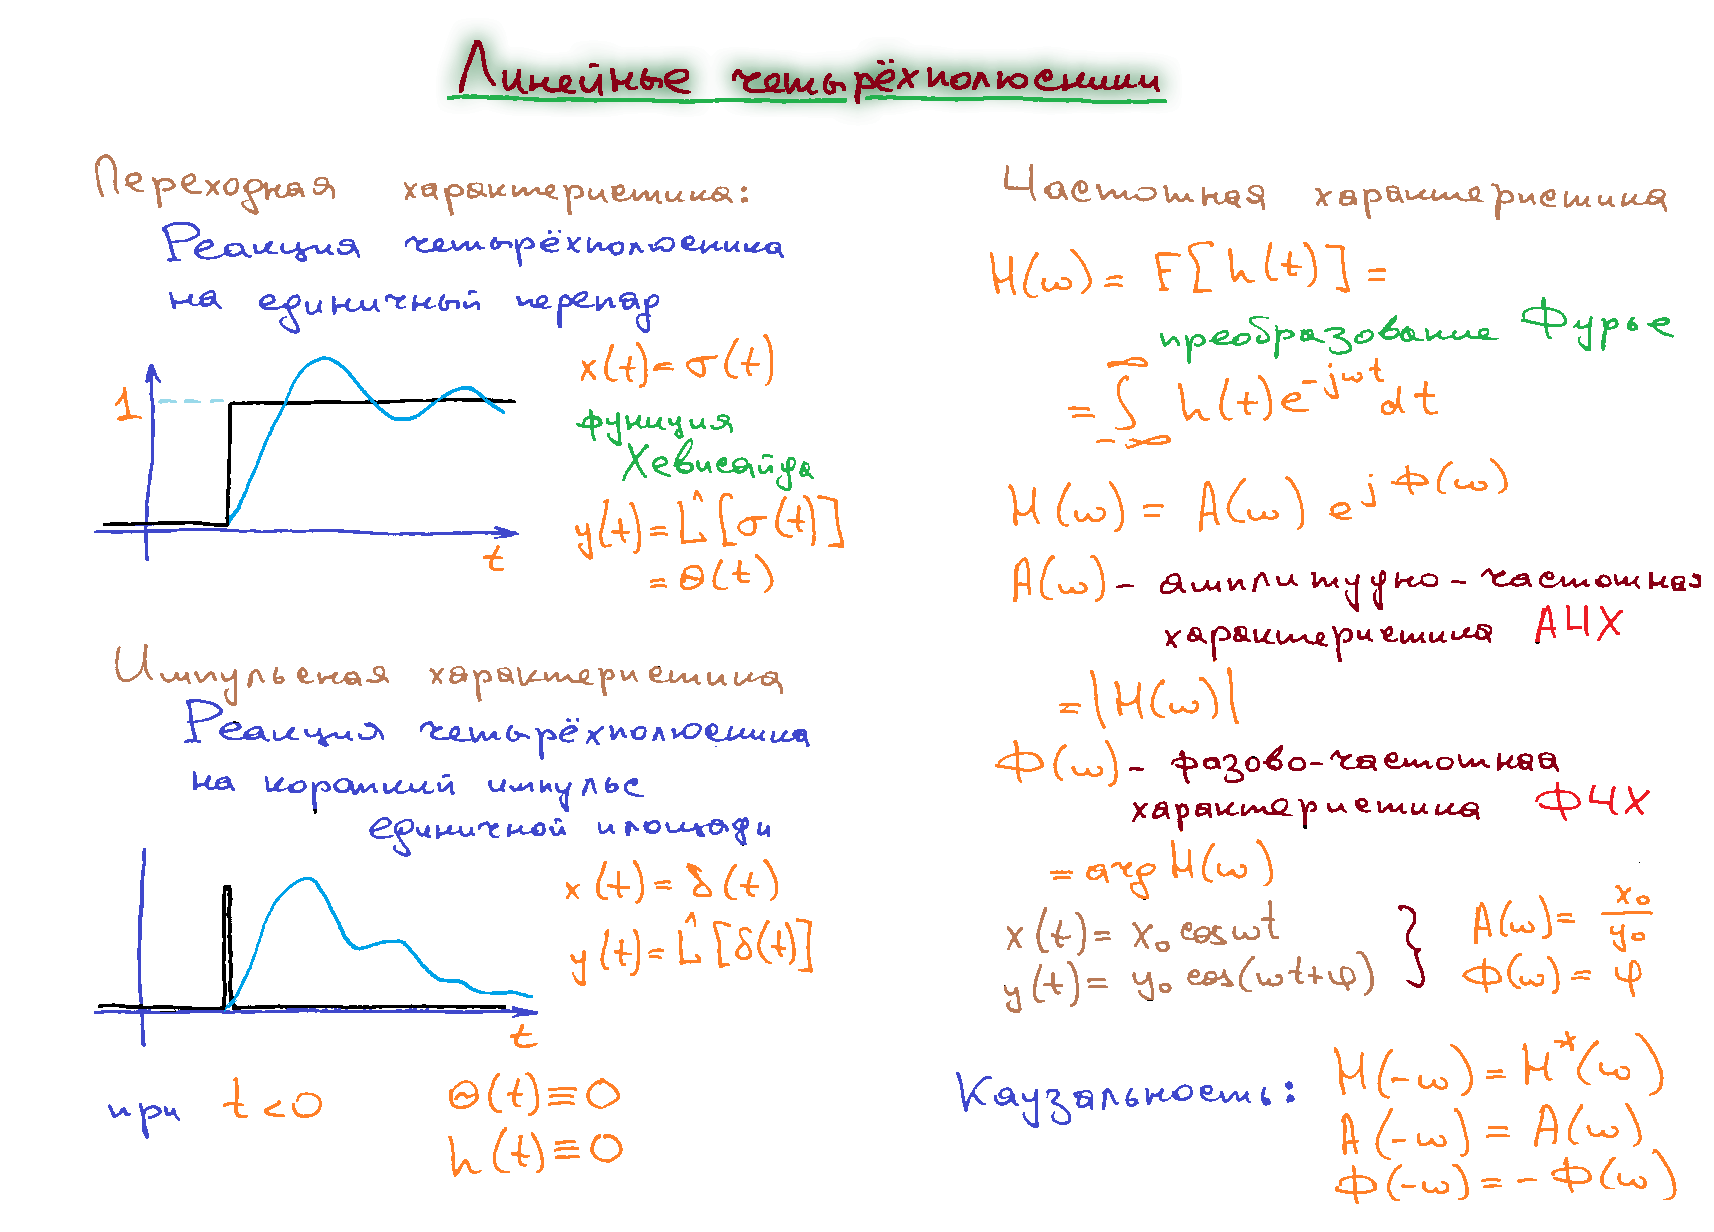 Линейные четырёхполюсники
Переходная характеристика:
Реакция четырёхполюсника
на единичный перепад
1
t
x(t) = σ(t)
функция
Хевисайда
y(t) = L̂[σ(t)]
= Θ(t)
Импульсная характеристика
Реакция четырёхполюсника
на короткий импульс
единичной площади
t
x(t) = δ(t)
y(t) = L̂[δ(t)]
при t<0 Θ(t) ≡ 0
h(t) ≡ 0
Частотная характеристика
H(ω) = F[h(t)] =
преобразование Фурье
= ∫_{-∞}^{∞} h(t) e^{-jωt} dt
H(ω) = A(ω) e^{jФ(ω)}
A(ω) - амплитудно-частотная
характеристика АЧХ
= |H(ω)|
Ф(ω) - фазово-частотная
характеристика ФЧХ
= arg H(ω)
x(t) = x₀ cosωt
y(t) = y₀ cos(ωt+φ)
} A(ω) = x₀/y₀
Ф(ω) = φ
Каузальность: H(-ω) = H*(ω)
A(-ω) = A(ω)
Ф(-ω) = - Ф(ω)